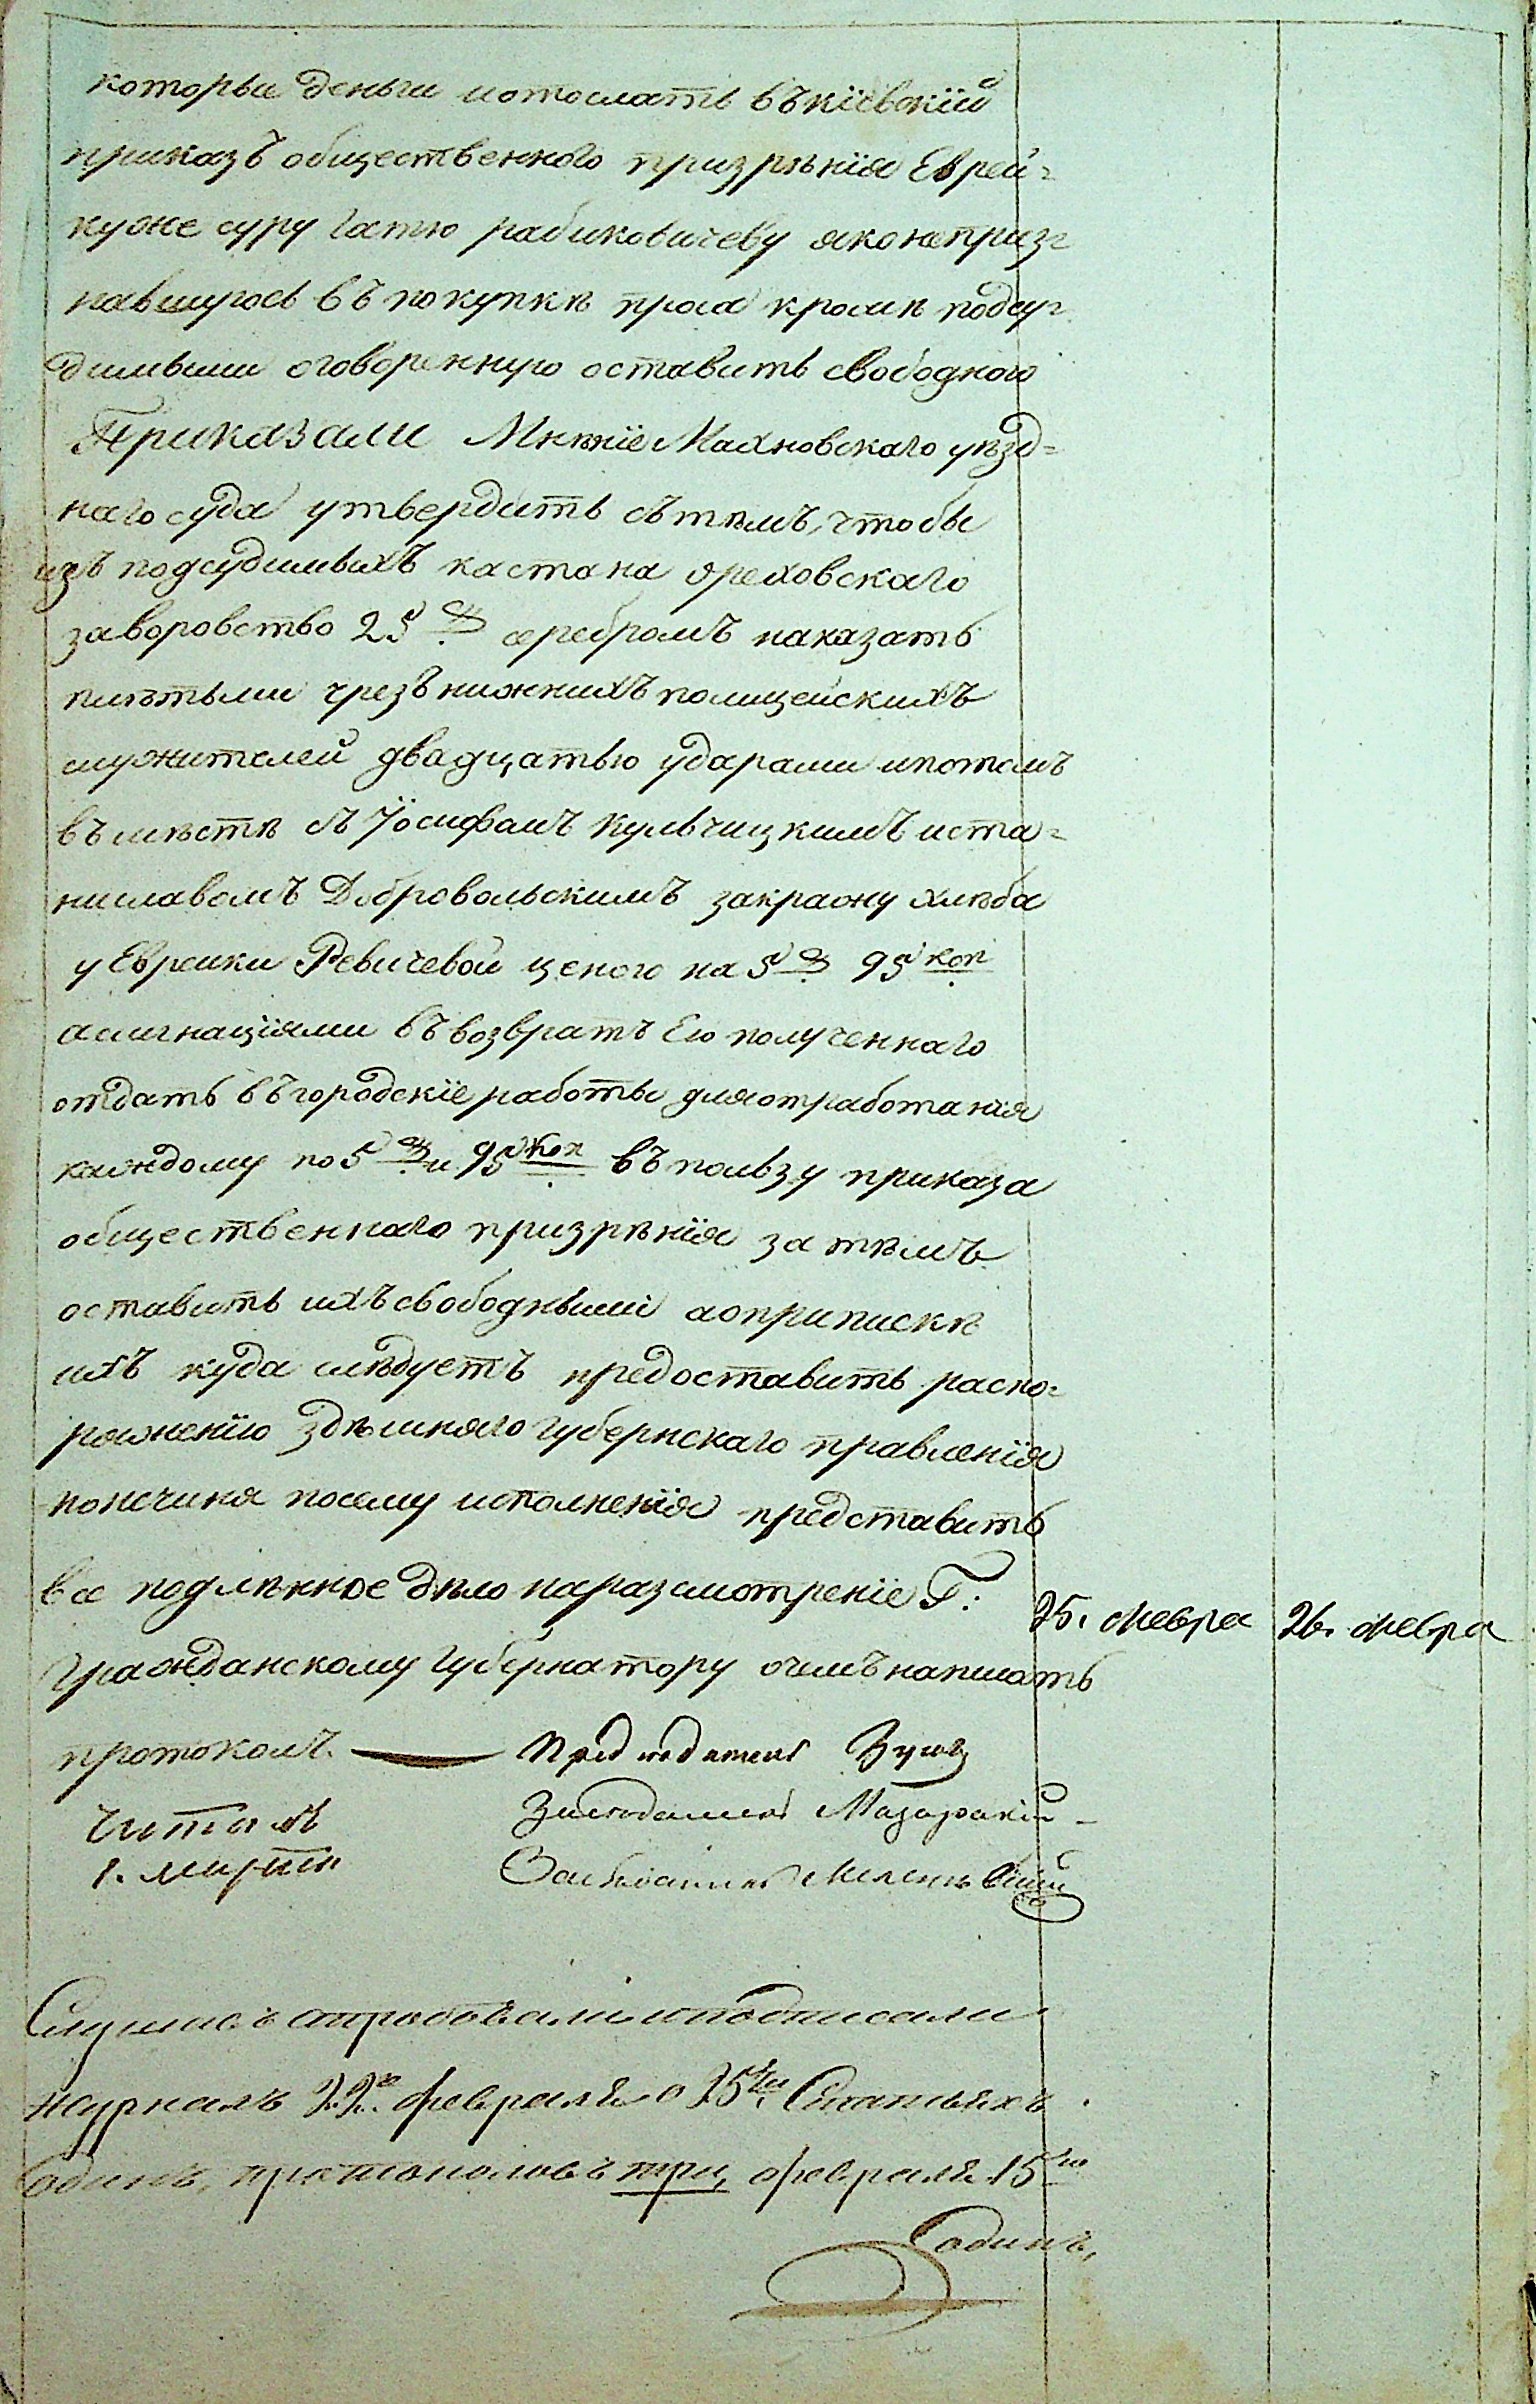 которые деньги иотослать въ кіевскій
приказъ общественного призрѣнія Еврей=
ку же суру Гатю рабиковичеву яко неприз=
навшуюсь въ покупкѣ проса кромѣ подсу=
димыми оговоренную оставить свободною
Приказали Мнѣніе Махновскаго уѣзд=
наго суда утвердить сътѣмъ, чтобы
изъ подсудимыхъ кастана ореховскаго
заворовство 25 серебромъ наказать
плѣтьми чрезъ нижнихъ полицейскихъ
служителей двадцатью ударами ипотомъ
въмѣстѣ съ Іосифомъ Кульчицкимъ иста=
ниславомъ Добровольскимъ закражу хлѣба
у Еврейки Ревичевой ценою на 5 95 коп
асигнаціями въ возвратъ Ею полученнаго
отдать въ городскіе работы для отработанія
каждому по 5 и 95 коп въ пользу приказа
общественнаго призрѣнія за тѣмъ
оставить ихъ свободными а оприпискѣ
ихъ куда слѣдуетъ предоставить распо=
ряженію здѣшняго губернскаго правленія
нонечиня посему исполненія представить
все подлѣнное дѣло на разсмотреніе Г:
Гражданскому Губернатору очемъ написать
протоколъ.
25. февра 26. февра
Председатель
Заседатель
Читалъ
1. марта
Заседатель
Слушав
иподписали
журналъ 22 февраля о 25 Статьяхъ
одинъ, протоколовъ три, февраля 15
одинъ,